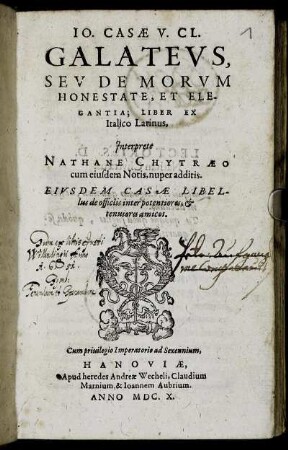 1
IO. CASÆ V. CL.
GALATEVS,
SEV DE MORVM
HONESTATE, ET ELE-
GANTIA; LIBER EX
Italico Latinus,
Interprete
NATHANE CHYTRÆO
cum eiusdem Notis, nuper additis.
EIVSDEM CASÆ LIBEL-
lus de officiis inter potentiores, &
tenuiores amicos.
Cum priuilegio Imperatorio ad Sexennium,
HANOVIÆ,
Apud heredes Andreæ Wecheli, Claudium
Marnium, & Ioannem Aubrium.
ANNO MDC. X.